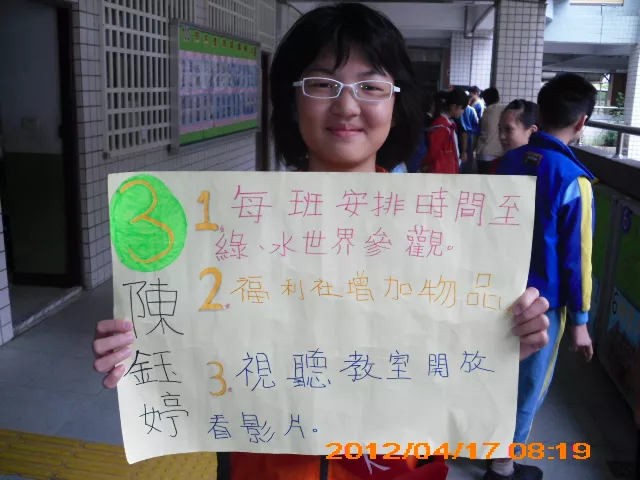 3
陳鈺婷
1. 每班安排時間至
綠、水世界參觀。
2. 福利社增加物品
3. 視聽教室開放
看影片。
2012/04/17 08:19